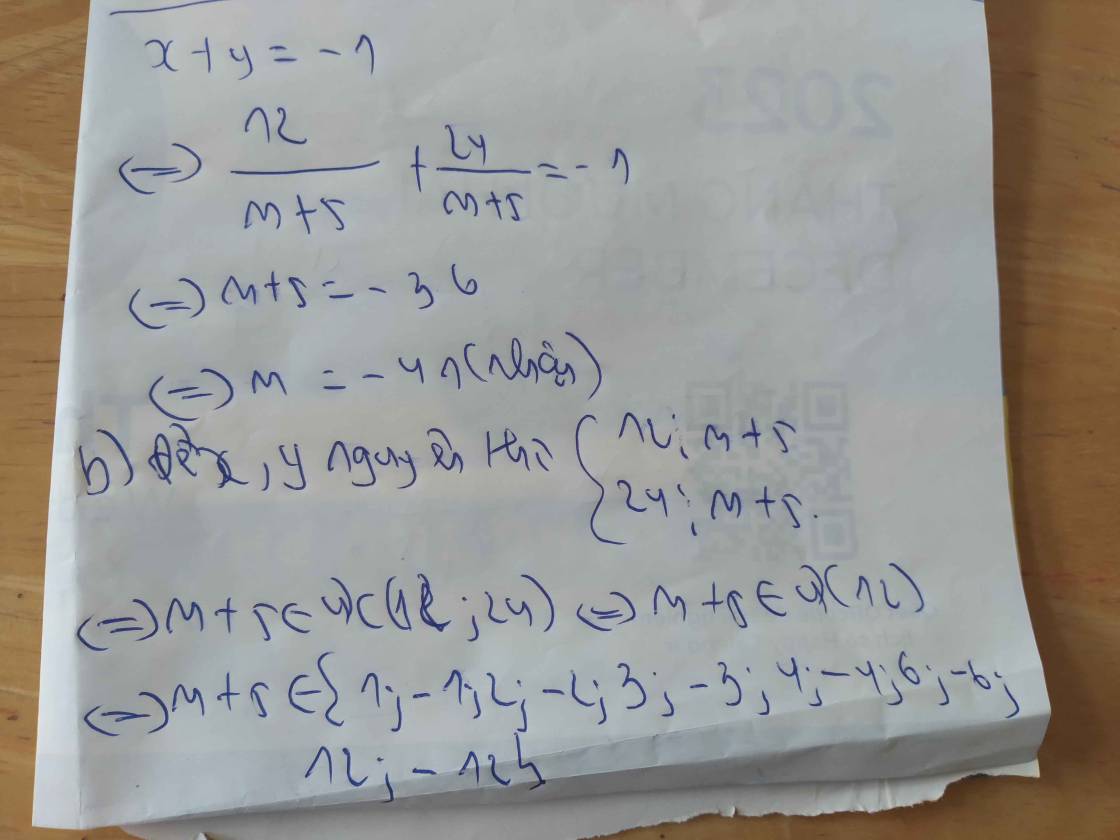 x + y = -1
⇔ 12/(m+5) + 24/(m+5) = -1
⇔ m+5 = -36
⇔ m = -41 (nhận)
b) Để x, y nguyên thì { 12 ⋮ m+5
24 ⋮ m+5.
⇔ m+5 ∈ ƯC(12; 24) ⇔ m+5 ∈ Ư(12)
⇔ m+5 ∈ { 1; -1; 2; -2; 3; -3; 4; -4; 6; -6;
12; -12}
2025
DECEMBER